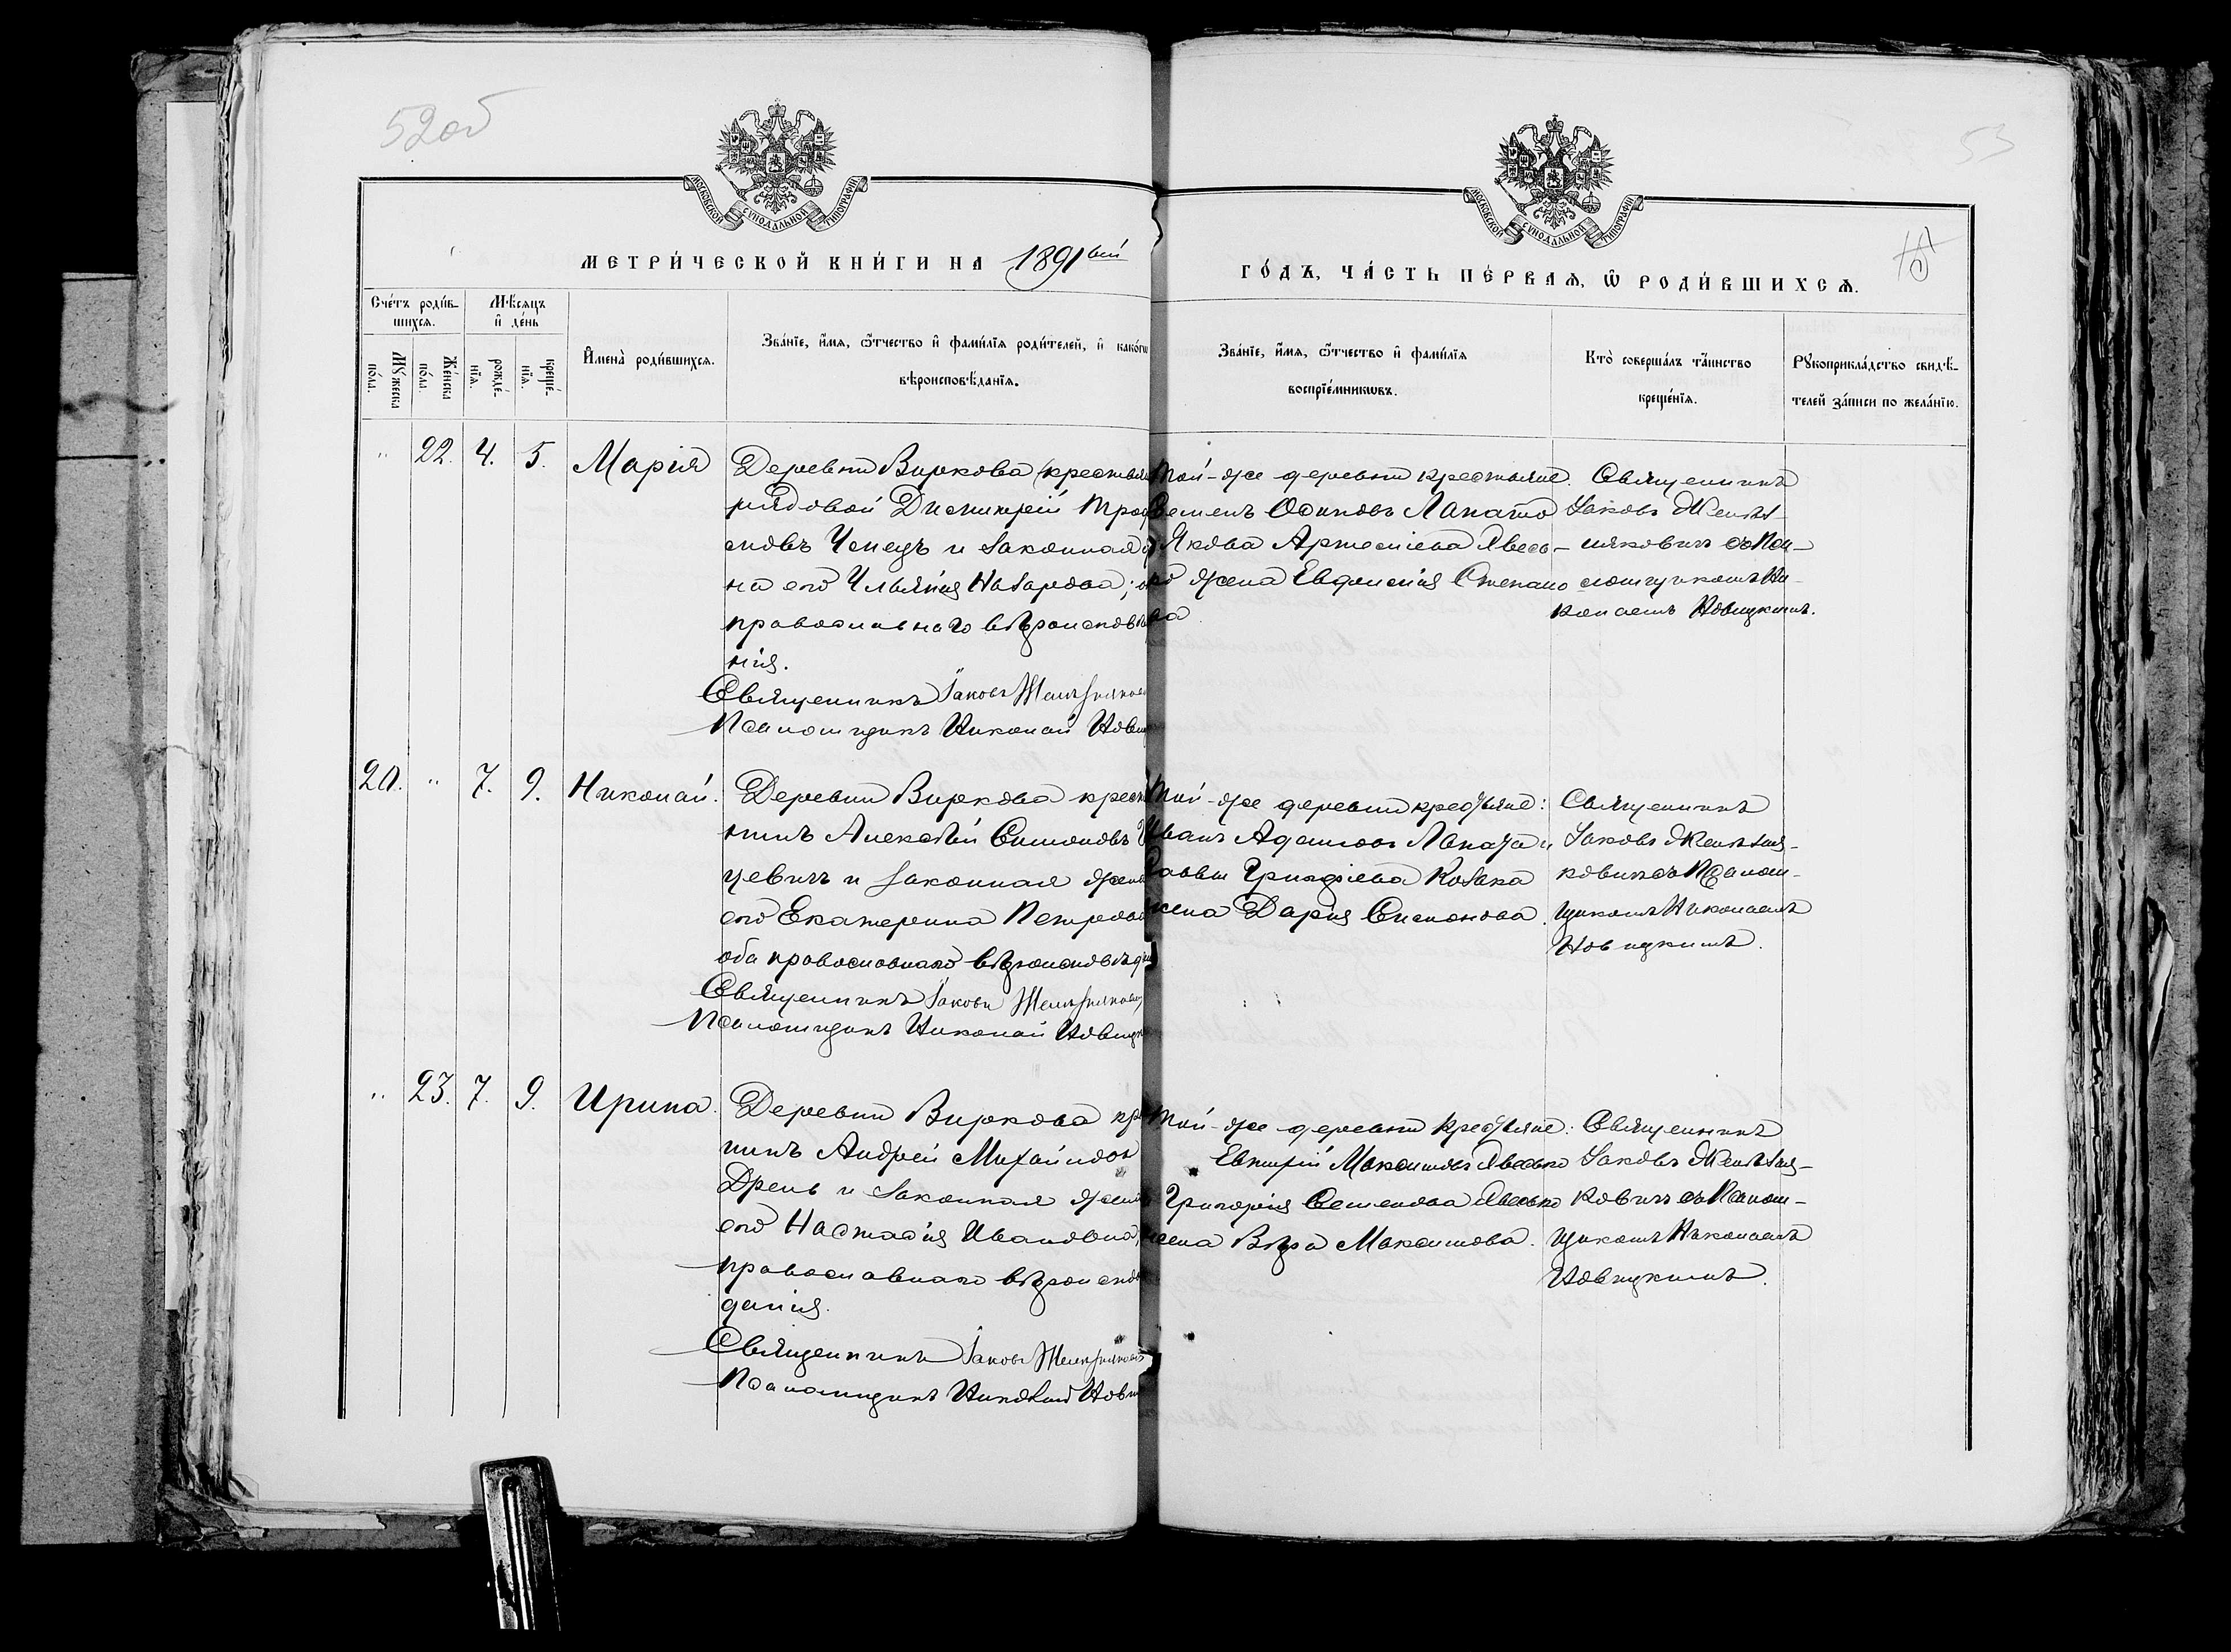 52об
53
МОСКОВСКОЙ СѴНОДАЛЬНОЙ ТИПОГРАФІИ
МОСКОВСКОЙ СѴНОДАЛЬНОЙ ТИПОГРАФІИ
МЕТРИ́ЧЕСКОЙ КНИ́ГИ НА 1891ый
ГО́ДЪ, ЧА́СТЬ ПЕ́РВАЯ, Ѡ РОДИ́ВШИХСЯ.
Сче́тъ роди́в-
шихся.
Мѣ́сяцъ
и де́нь
Му́жеска по́ла.
Же́нска по́ла.
рожде́-
нїя.
креще́-
нїя.
И҆мена̀ роди́вшихся.
Зва́нїе, и҆́мя, ѻ҆́тчество и҆ фами́лїя роди́телей, и҆ како́гѡ
вѣроисповѣ́данїя.
Зва́нїе, и҆́мя, ѻ҆́тчество и҆ фами́лїя
воспрїе́мникѡвъ.
Кто̀ соверша́лъ та́инство
креще́нїя.
Рꙋкоприкла́дство свидѣ́-
телей за́писи по жела́нїю.
" 22. 4. 5. Марія
Деревни Виркова крестьян
рядовой Димитрій Троф
новъ и законная
на его Назарова;
православнаго вѣроисповѣ
нія.
Священникъ Іаковъ
Псаломщикъ Николай Новиц
Той-же деревни крестьяне.
Семенъ Осиповъ Лапато
Якова Артемиева
жена Евфимія Степано
ва
Священникъ
Іаковъ Желѣз-
няковичъ съ Пса-
ломщикомъ Ни-
колаемъ Новицкимъ.
20. " 7. 9. Николай.
Деревни Виркова крест
нинъ Алексѣй Симоновъ
цевичъ и законная жена
его Екатерина Петрова
оба православнаго вѣроисповѣдан
Священникъ Іаковъ
Псаломщикъ Николай Новицк
Той-же деревни крестьяне:
Иванъ Адамовъ Лапата и
Саввы Григоріева Козака
жена Дарія Симонова.
Священникъ
Іаковъ Желѣзня-
ковичъ съ Псалом-
щикомъ Николаемъ
Новицкимъ.
" 23. 7. 9. Ирина.
Деревни Виркова кр
нинъ Андрей Михайлов
Дрень и законная жена
его Настасія Иванова,
православнаго вѣроиспов
данія.
Священникъ Іаковъ
Псаломщикъ Николай Нови
Той-же деревни крестьяне:
Евтихій Максимовъ
Григорія Семенова
жена Вѣра Максимова.
Священникъ
Іаковъ Желѣзня-
ковичъ съ Псалом-
щикомъ Николаемъ
Новицкимъ.